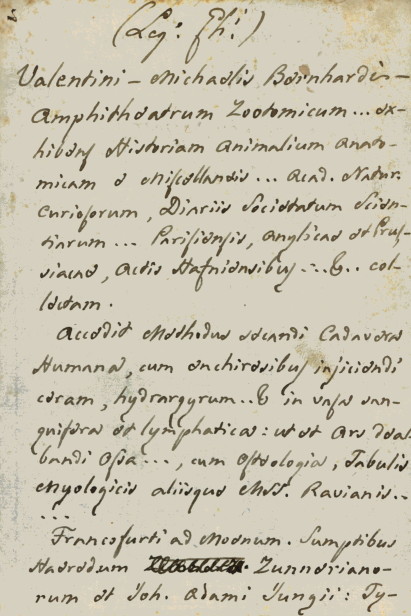 (Leg: Ph:)
Valentini – Michaelis Bernhardi –
Amphitheatrum Zootomicum ... ex-
hibens Historiam Animalium Anato-
micam e Miscellaneis ... Acad. Natur.
Curiosorum, Diariis Societatum Scien-
tiarum ... Parisiensis, Anglicae et Prus-
siacae, Actis Hafniensibus ... &.. col-
lectam.
Accedit Methodus secandi Cadavera
Humana, cum encheiresibus injiciendi
ceram, hydrargyrum .. & in vasa san-
guifera et lymphatica: ut et Ars deal-
bandi Ossa ..., cum Osteologia, Tabulis
Myologicis aliisque Mss. Ravianis ..
...
Francofurti ad Moenum. Sumptibus
Haeredum Zunneriano-
rum et Joh. Adami Jungii: Ty-